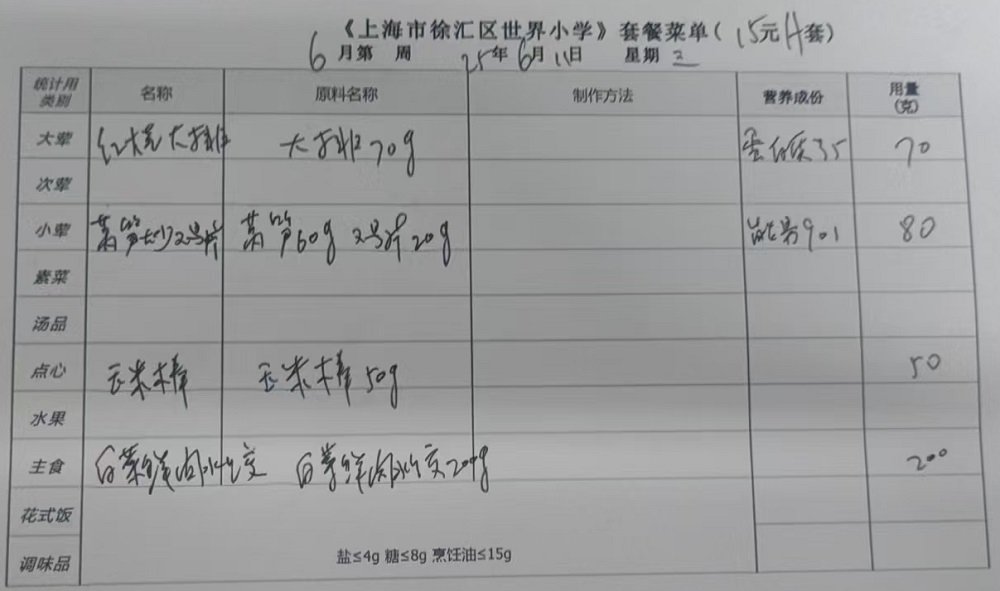 《上海市徐汇区世界小学》套餐菜单(15元A套)
6月第 周 25年6月11日 星期三
统计用类别 名称 原料名称 制作方法 营养成份 用量(克)
大荤 红烧大排 大排70g 蛋白质35 70
次荤
小荤 莴笋炒鸡片 莴笋60g 鸡片20g 能量901 80
素菜
汤品
点心 玉米棒 玉米棒50g 50
水果
主食 白菜鲜肉水饺 白菜鲜肉水饺200g 200
花式饭
调味品 盐≤4g 糖≤8g 烹饪油≤15g